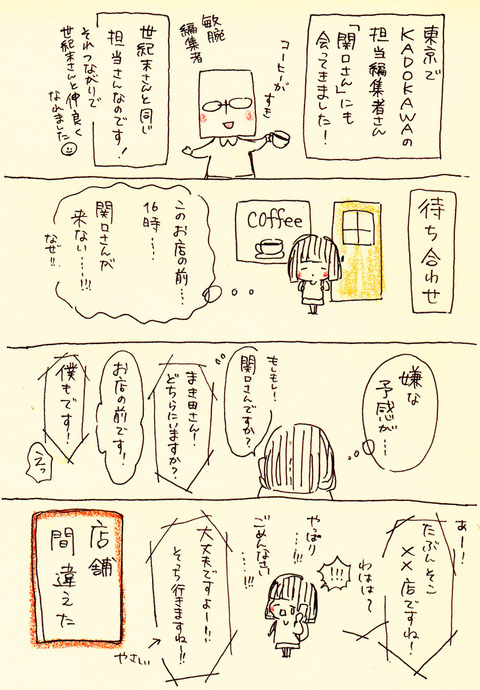 東京で
KADOKAWAの
担当編集者さん
「関口さん」にも
会ってきました！
コーヒーが
すき
敏腕
編集者
世紀末さんと同じ
担当さんなのです！
それつながりで
世紀末さんと仲良く
なれました
待ち合わせ
coffee
このお店の前…
16時…
関口さんが
来ない…!!!
なぜ!!
嫌な
予感が…
もしもし！
関口さんですか？
まき田さん！
どちらにいますか？
お店の前です！
僕もです！
えっ
あー！
たぶんそこ
××店ですね！
わはは〜
!!!
やっぱり
…!!!
ごめんなさい
…!!!
大丈夫ですよー！！
そっち行きますねー!!
やさしい
店舗
間違えた